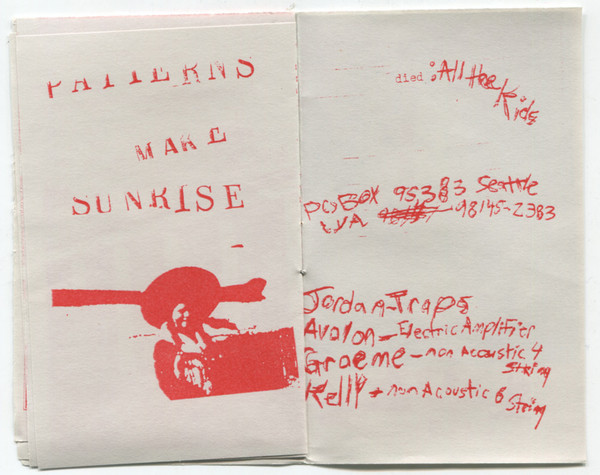 PATTERNS
MAKE
SUNRISE
died : All the
Kids
PO BOX 95383 Seattle
WA 98145-2383
Jordan - Traps
Avalon - Electric Amplifier
Graeme - non Acoustic 4
String
Kelly + non Acoustic 6
String